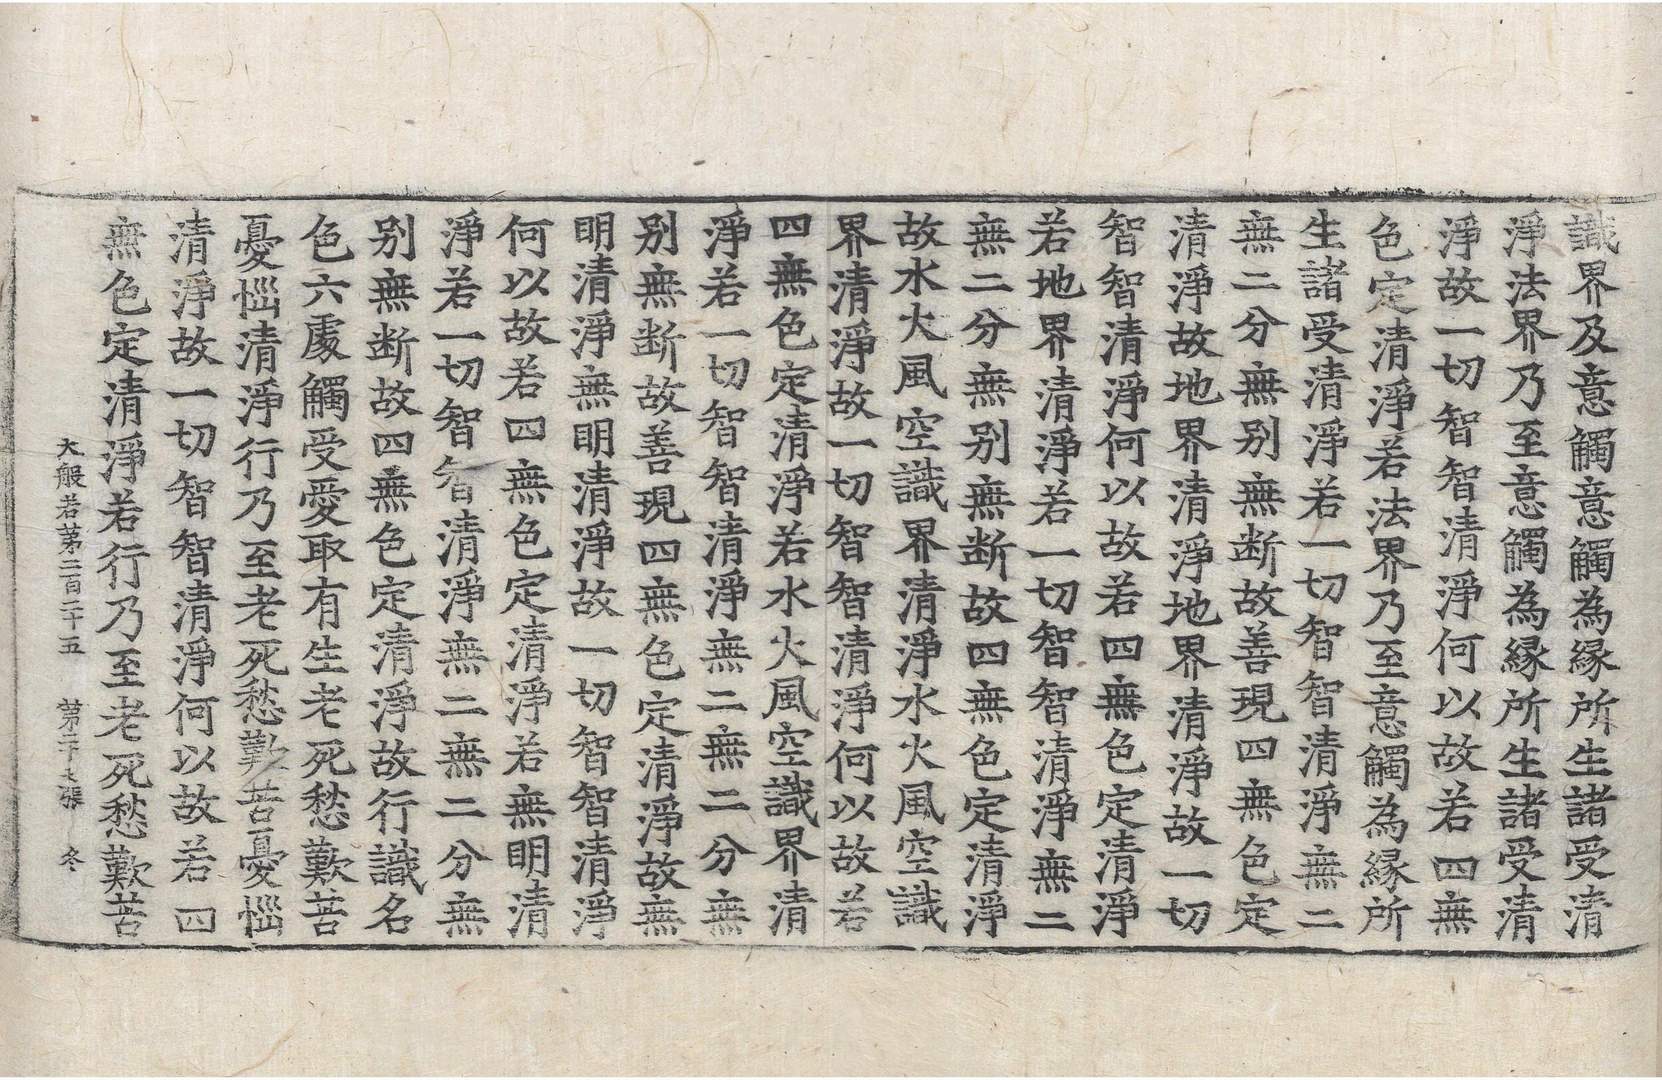 識界及意觸意觸為緣所生諸受清
淨法界乃至意觸為緣所生諸受清
淨故一切智智清淨何以故若四無
色定清淨若法界乃至意觸為緣所
生諸受清淨若一切智智清淨無二
無二分無别無断故善現四無色定
清淨故地界清淨地界清淨故一切
智智清淨何以故若四無色定清淨
若地界清淨若一切智智清淨無二
無二分無别無断故四無色定清淨
故水火風空識界清淨水火風空識
界清淨故一切智智清淨何以故若
四無色定清淨若水火風空識界清
淨若一切智智清淨無二無二分無
别無断故善現四無色定清淨故無
明清淨無明清淨故一切智智清淨
何以故若四無色定清淨若無明清
淨若一切智智清淨無二無二分無
别無断故四無色定清淨故行識名
色六處觸受愛取有生老死愁歎苦
憂惱清淨行乃至老死愁歎苦憂惱
清淨故一切智智清淨何以故若四
無色定清淨若行乃至老死愁歎苦
大般若第二百二十五 第二十之張 冬